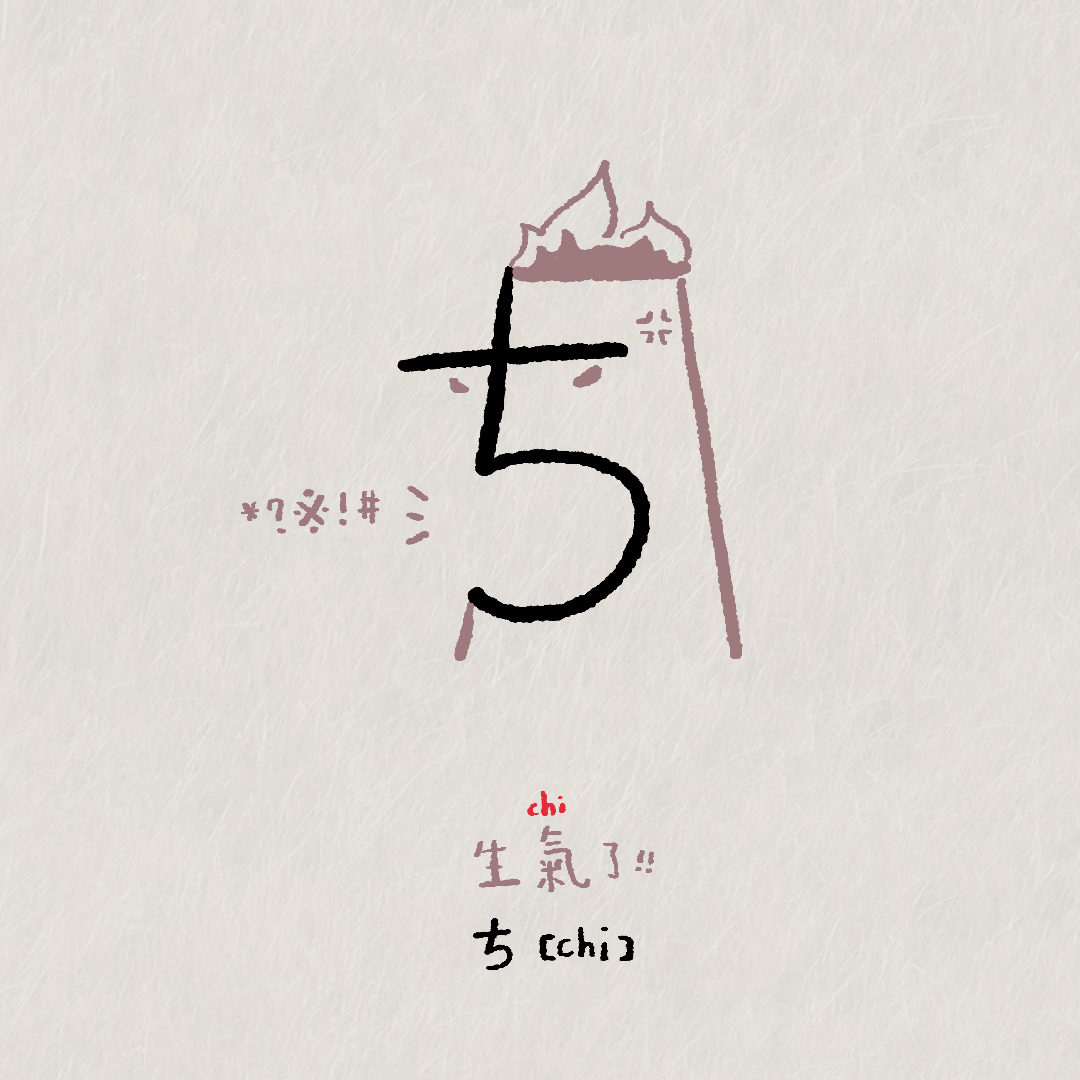 ち
*?※!#
chi
生氣了!!
ち [chi]